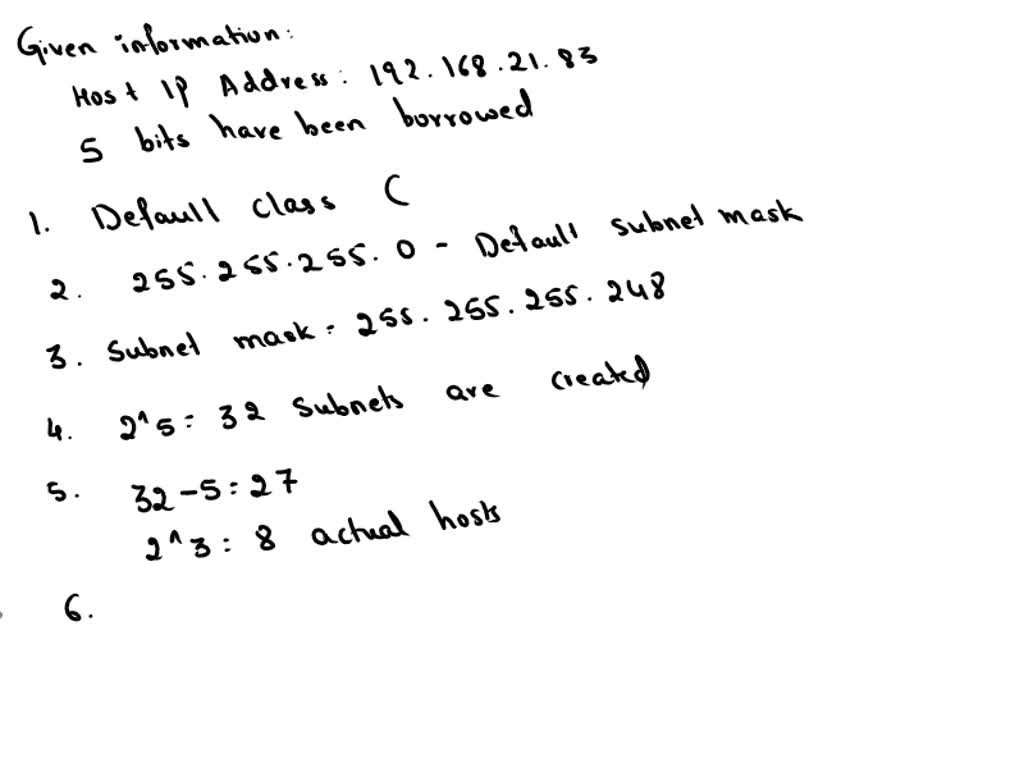 Given information:
Host IP Address: 192.168.21.83
5 bits have been borrowed
1. Defaull class C
2. 255.255.255.0 - Default subnet mask
3. Subnet mask = 255.255.255.248
4. 2^5 = 32 Subnets are created
5. 32-5 = 27
2^3 = 8 actual hosts
6.